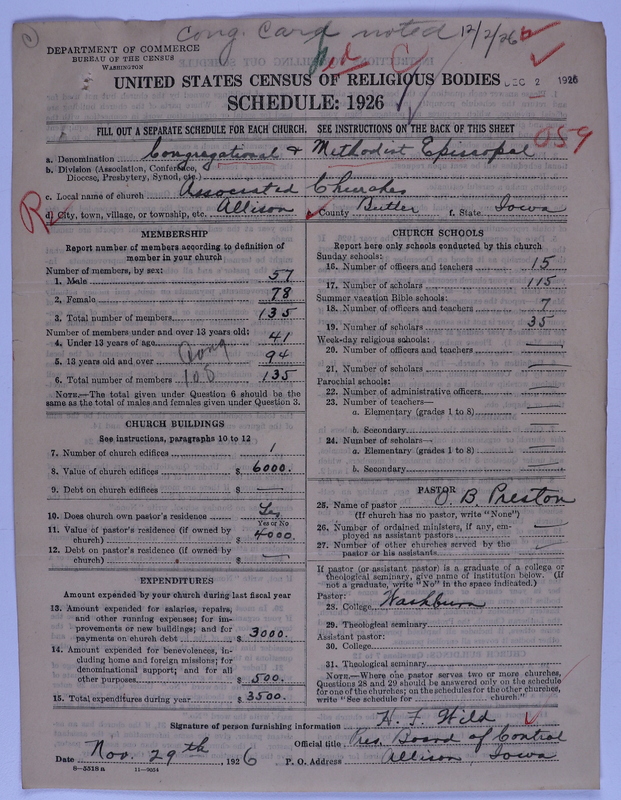 Cong. Card noted 12/2/26
DEPARTMENT OF COMMERCE
BUREAU OF THE CENSUS
WASHINGTON
UNITED STATES CENSUS OF RELIGIOUS BODIES
DEC 2 1926
SCHEDULE: 1926
FILL OUT A SEPARATE SCHEDULE FOR EACH CHURCH. SEE INSTRUCTIONS ON THE BACK OF THIS SHEET
059
a. Denomination Congregational & Methodist Episcopal
b. Division (Association, Conference,
Diocese, Presbytery, Synod, etc.)
c. Local name of church Associated Churches
R
d. City, town, village, or township, etc. Allison County Butler f. State Iowa
MEMBERSHIP
Report number of members according to definition of
member in your church
Number of members, by sex:
1. Male 57
2. Female 78
3. Total number of members 135
Number of members under and over 13 years old:
4. Under 13 years of age 41
5. 13 years old and over 94
Cong
108
6. Total number of members 135
NOTE.—The total given under Question 6 should be the
same as the total of males and females given under Question 3.
CHURCH BUILDINGS
See instructions, paragraphs 10 to 12
7. Number of church edifices 1
8. Value of church edifices $ 6000.
9. Debt on church edifices $ —
10. Does church own pastor's residence Yes
Yes or No
11. Value of pastor's residence (if owned by
church) $ 4000.
12. Debt on pastor's residence (if owned by
church) $ —
EXPENDITURES
Amount expended by your church during last fiscal year
13. Amount expended for salaries, repairs,
and other running expenses; for im-
provements or new buildings; and for
payments on church debt $ 3000.
14. Amount expended for benevolences, in-
cluding home and foreign missions; for
denominational support; and for all
other purposes $ 500.
15. Total expenditures during year $ 3500.
CHURCH SCHOOLS
Report here only schools conducted by this church
Sunday schools:
16. Number of officers and teachers 15
17. Number of scholars 115
Summer vacation Bible schools:
18. Number of officers and teachers 7
19. Number of scholars 35
Week-day religious schools:
20. Number of officers and teachers —
21. Number of scholars —
Parochial schools:
22. Number of administrative officers —
23. Number of teachers—
a. Elementary (grades 1 to 8) —
b. Secondary —
24. Number of scholars—
a. Elementary (grades 1 to 8) —
b. Secondary —
PASTOR
25. Name of pastor O. B. Preston
(If church has no pastor, write "None")
26. Number of ordained ministers, if any, em-
ployed as assistant pastors —
27. Number of other churches served by the
pastor or his assistants —
If pastor (or assistant pastor) is a graduate of a college or
theological seminary, give name of institution below. (If
not a graduate, write "No" in the space indicated.)
Pastor:
28. College Washburn
29. Theological seminary
Assistant pastor:
30. College
31. Theological seminary
NOTE.—Where one pastor serves two or more churches,
Questions 28 and 29 should be answered only on the schedule
for one of the churches; on the schedules for the other churches,
write "See schedule for church."
Signature of person furnishing information H. F. Wild
Official title Pres. Board of Control
Date Nov. 29th, 1926 P. O. Address Allison, Iowa
8-5518 a 11-9054